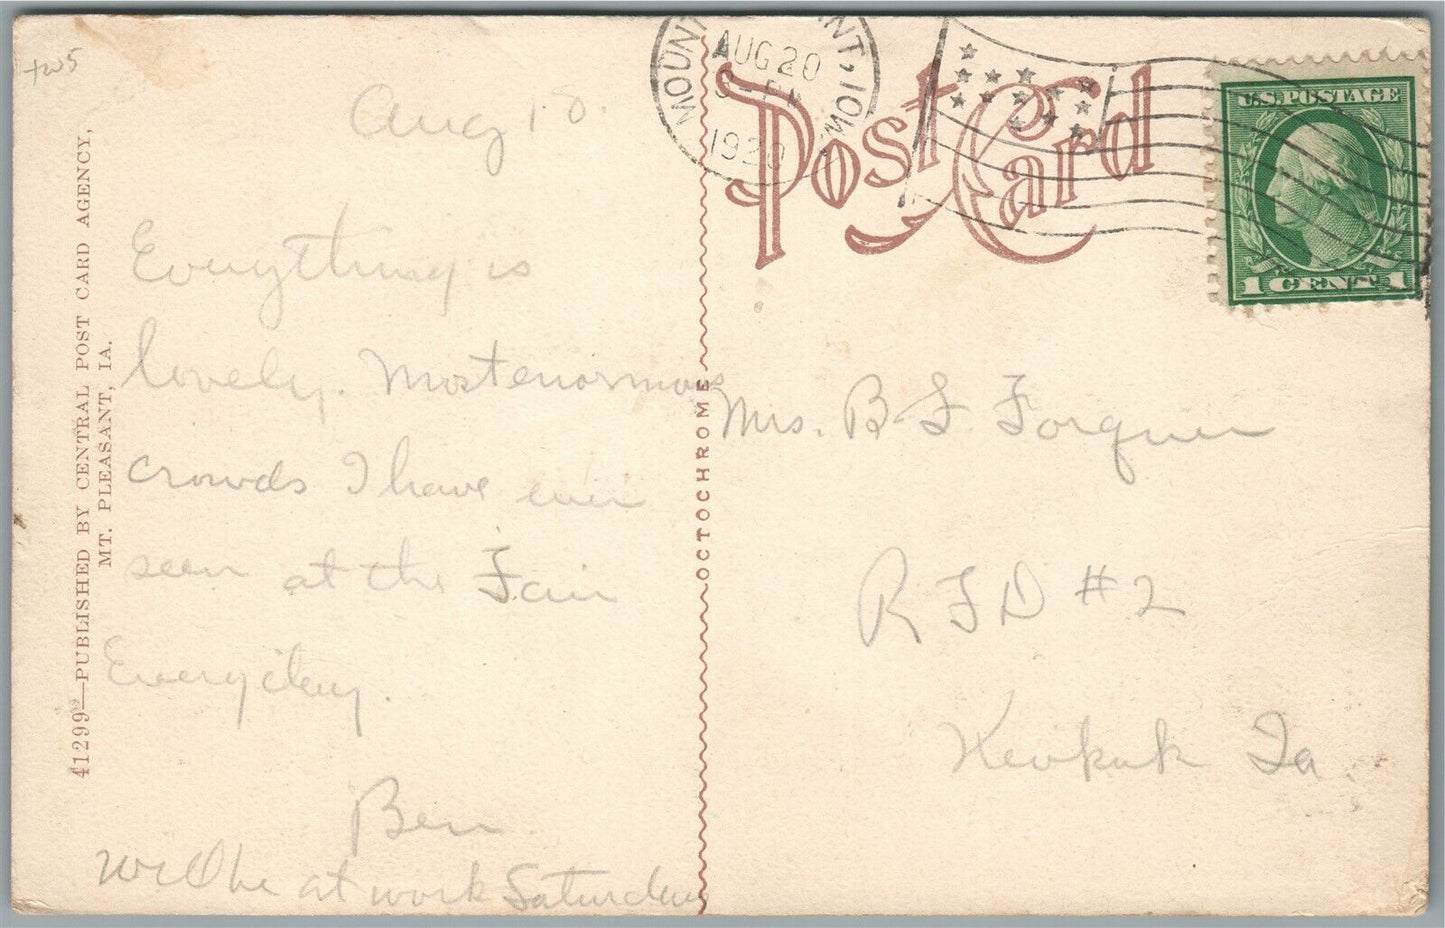 Aug 18
Everything is
lovely. Most enormous
crowds I have ever
seen at the Fair
Everyday.
Ben
at work Saturday
41299—PUBLISHED BY CENTRAL POST CARD AGENCY,
MT. PLEASANT, IA.
OCTOCHROME
Post Card
AUG 20
1920
U.S. POSTAGE
1 CENT 1
Mrs. B F Forquer
R F D #2
Keokuk Ia